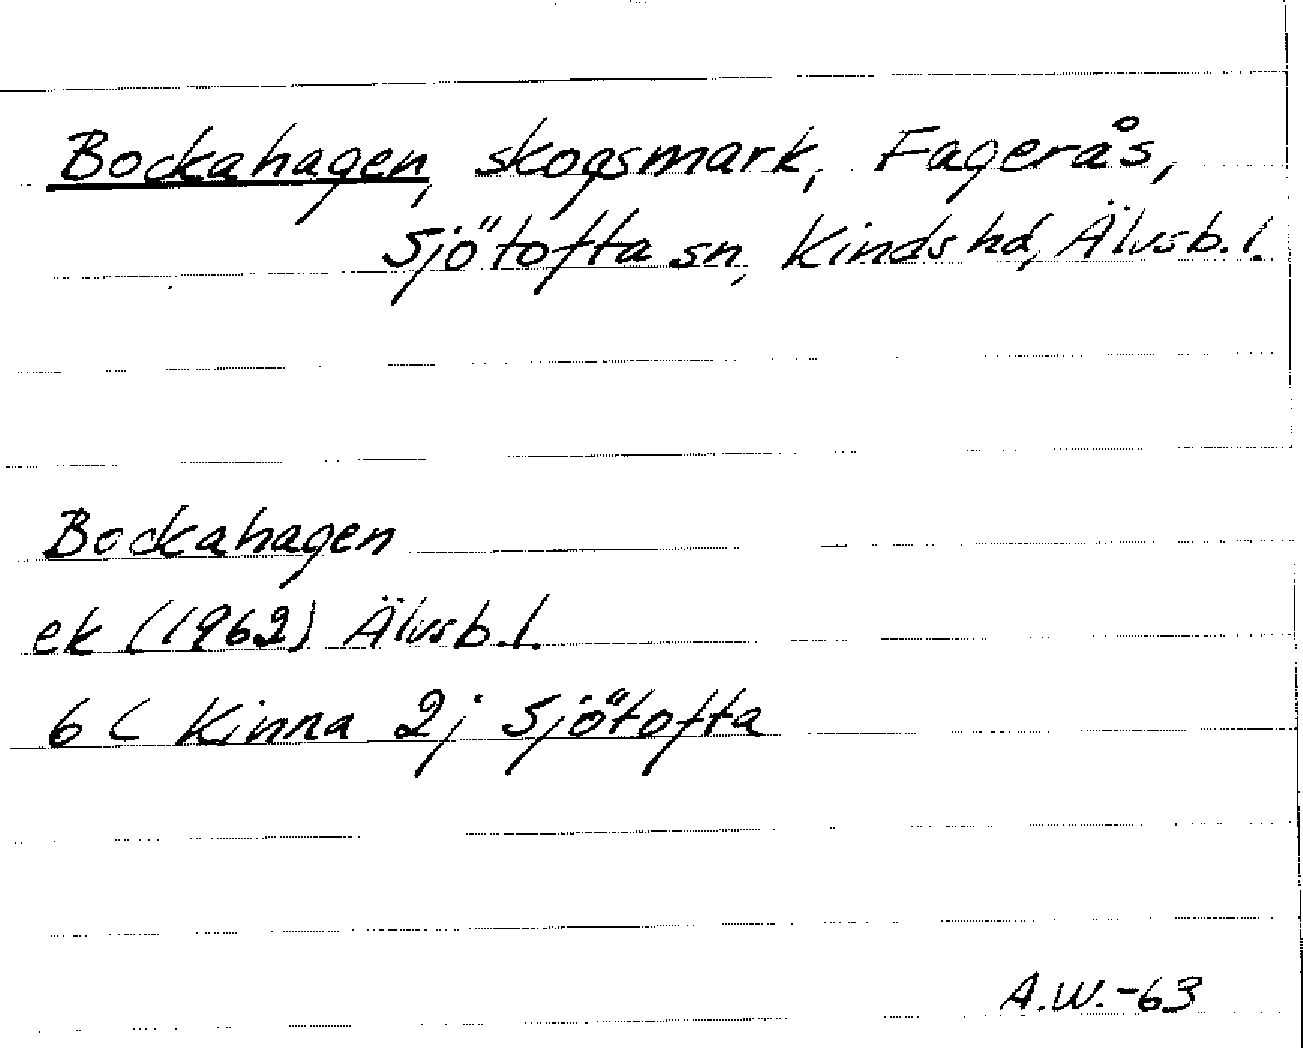 Bockahagen, skogsmark, Fagerås,
Sjötofta sn, Kinds hd, Älvsb. l.
Bockahagen
ek (1962) Älvsb. l.
6 C Kinna 2j Sjötofta
A.W.-63